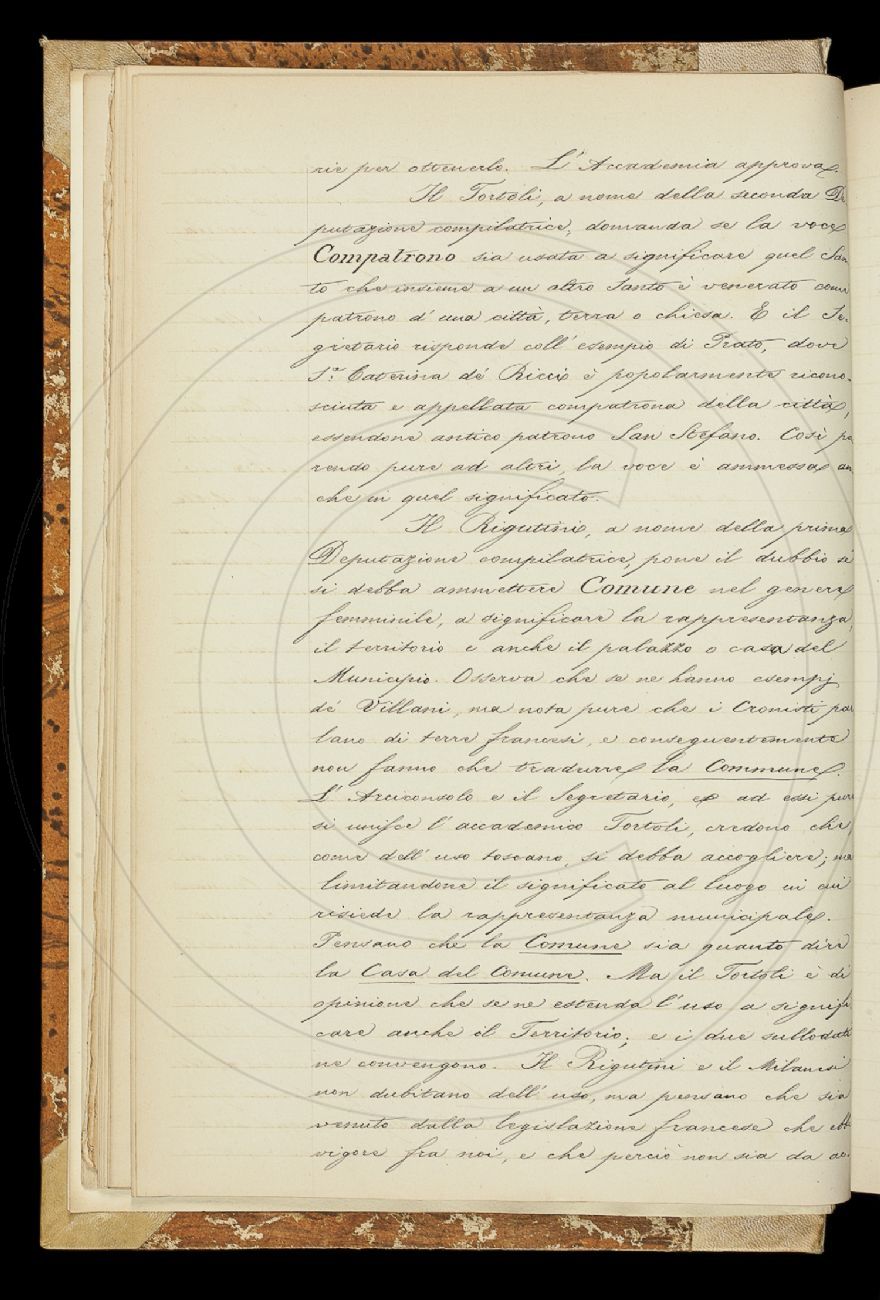 rie per ottenerlo. L'Accademia approva.
Il Tortoli, a nome della seconda De
putazione compilatrice, domanda se la voce
Compatrono sia usata a significare quel San
to che insieme a un altro Santo è venerato come
patrono d'una città, terra o chiesa. E il Se-
gretario risponde coll'esempio di Prato, dove
S.ta Caterina de' Ricci è popolarmente ricono-
sciuta e appellata compatrona della città,
essendone antico patrono San Stefano. Così pa
rendo pure ad altri, la voce è ammessa an
che in quel significato.
Il Rigutini, a nome della prima
Deputazione compilatrice, pone il dubbio se
si debba ammettere Comune nel genere
femminile, a significare la rappresentanza,
il territorio e anche il palazzo o casa del
Municipio. Osserva che se ne hanno esempj
de' Villani, ma nota pure che i Cronisti par
lano di terre francesi, e conseguentemente
non fanno che tradurre la Commune.
L'Arciconsolo e il Segretario, e ad essi pure
si unisce l'accademico Tortoli, credono che,
come dell'uso toscano, si debba accogliere; ma
limitandone il significato al luogo in cui
risiede la rappresentanza municipale.
Pensano che la Comune sia quanto dire
la Casa del Comune. Ma il Tortoli è di
opinione che se ne estenda l'uso a signifi
care anche il Territorio; e i due sullodati
ne convengono. Il Rigutini e il Milanesi
non dubitano dell'uso, ma pensano che sia
venuto dalla legislazione francese che ebbe
vigore fra noi, e che perciò non sia da ac-